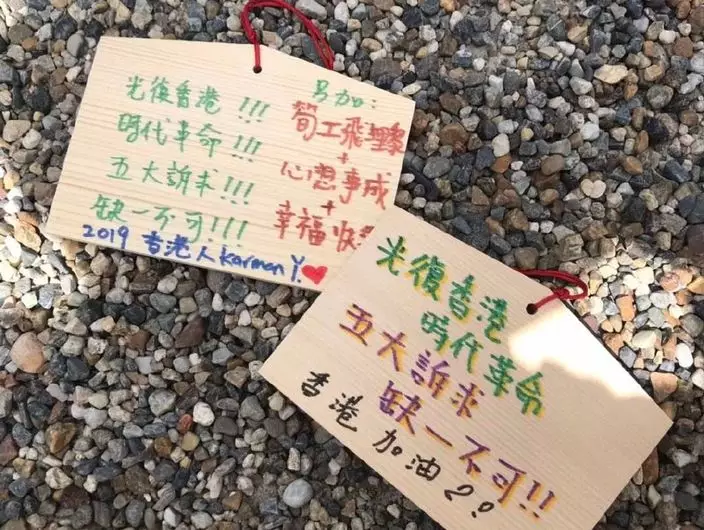 光復香港!!!
時代革命!!!
五大訴求!!!
缺一不可!!!
2019 香港人 Karmen Y.
另加:
筍工飛埋嚟
+
心想事成
+
幸福快
光復香港
時代革命
五大訴求
缺一不可!!
香港加油